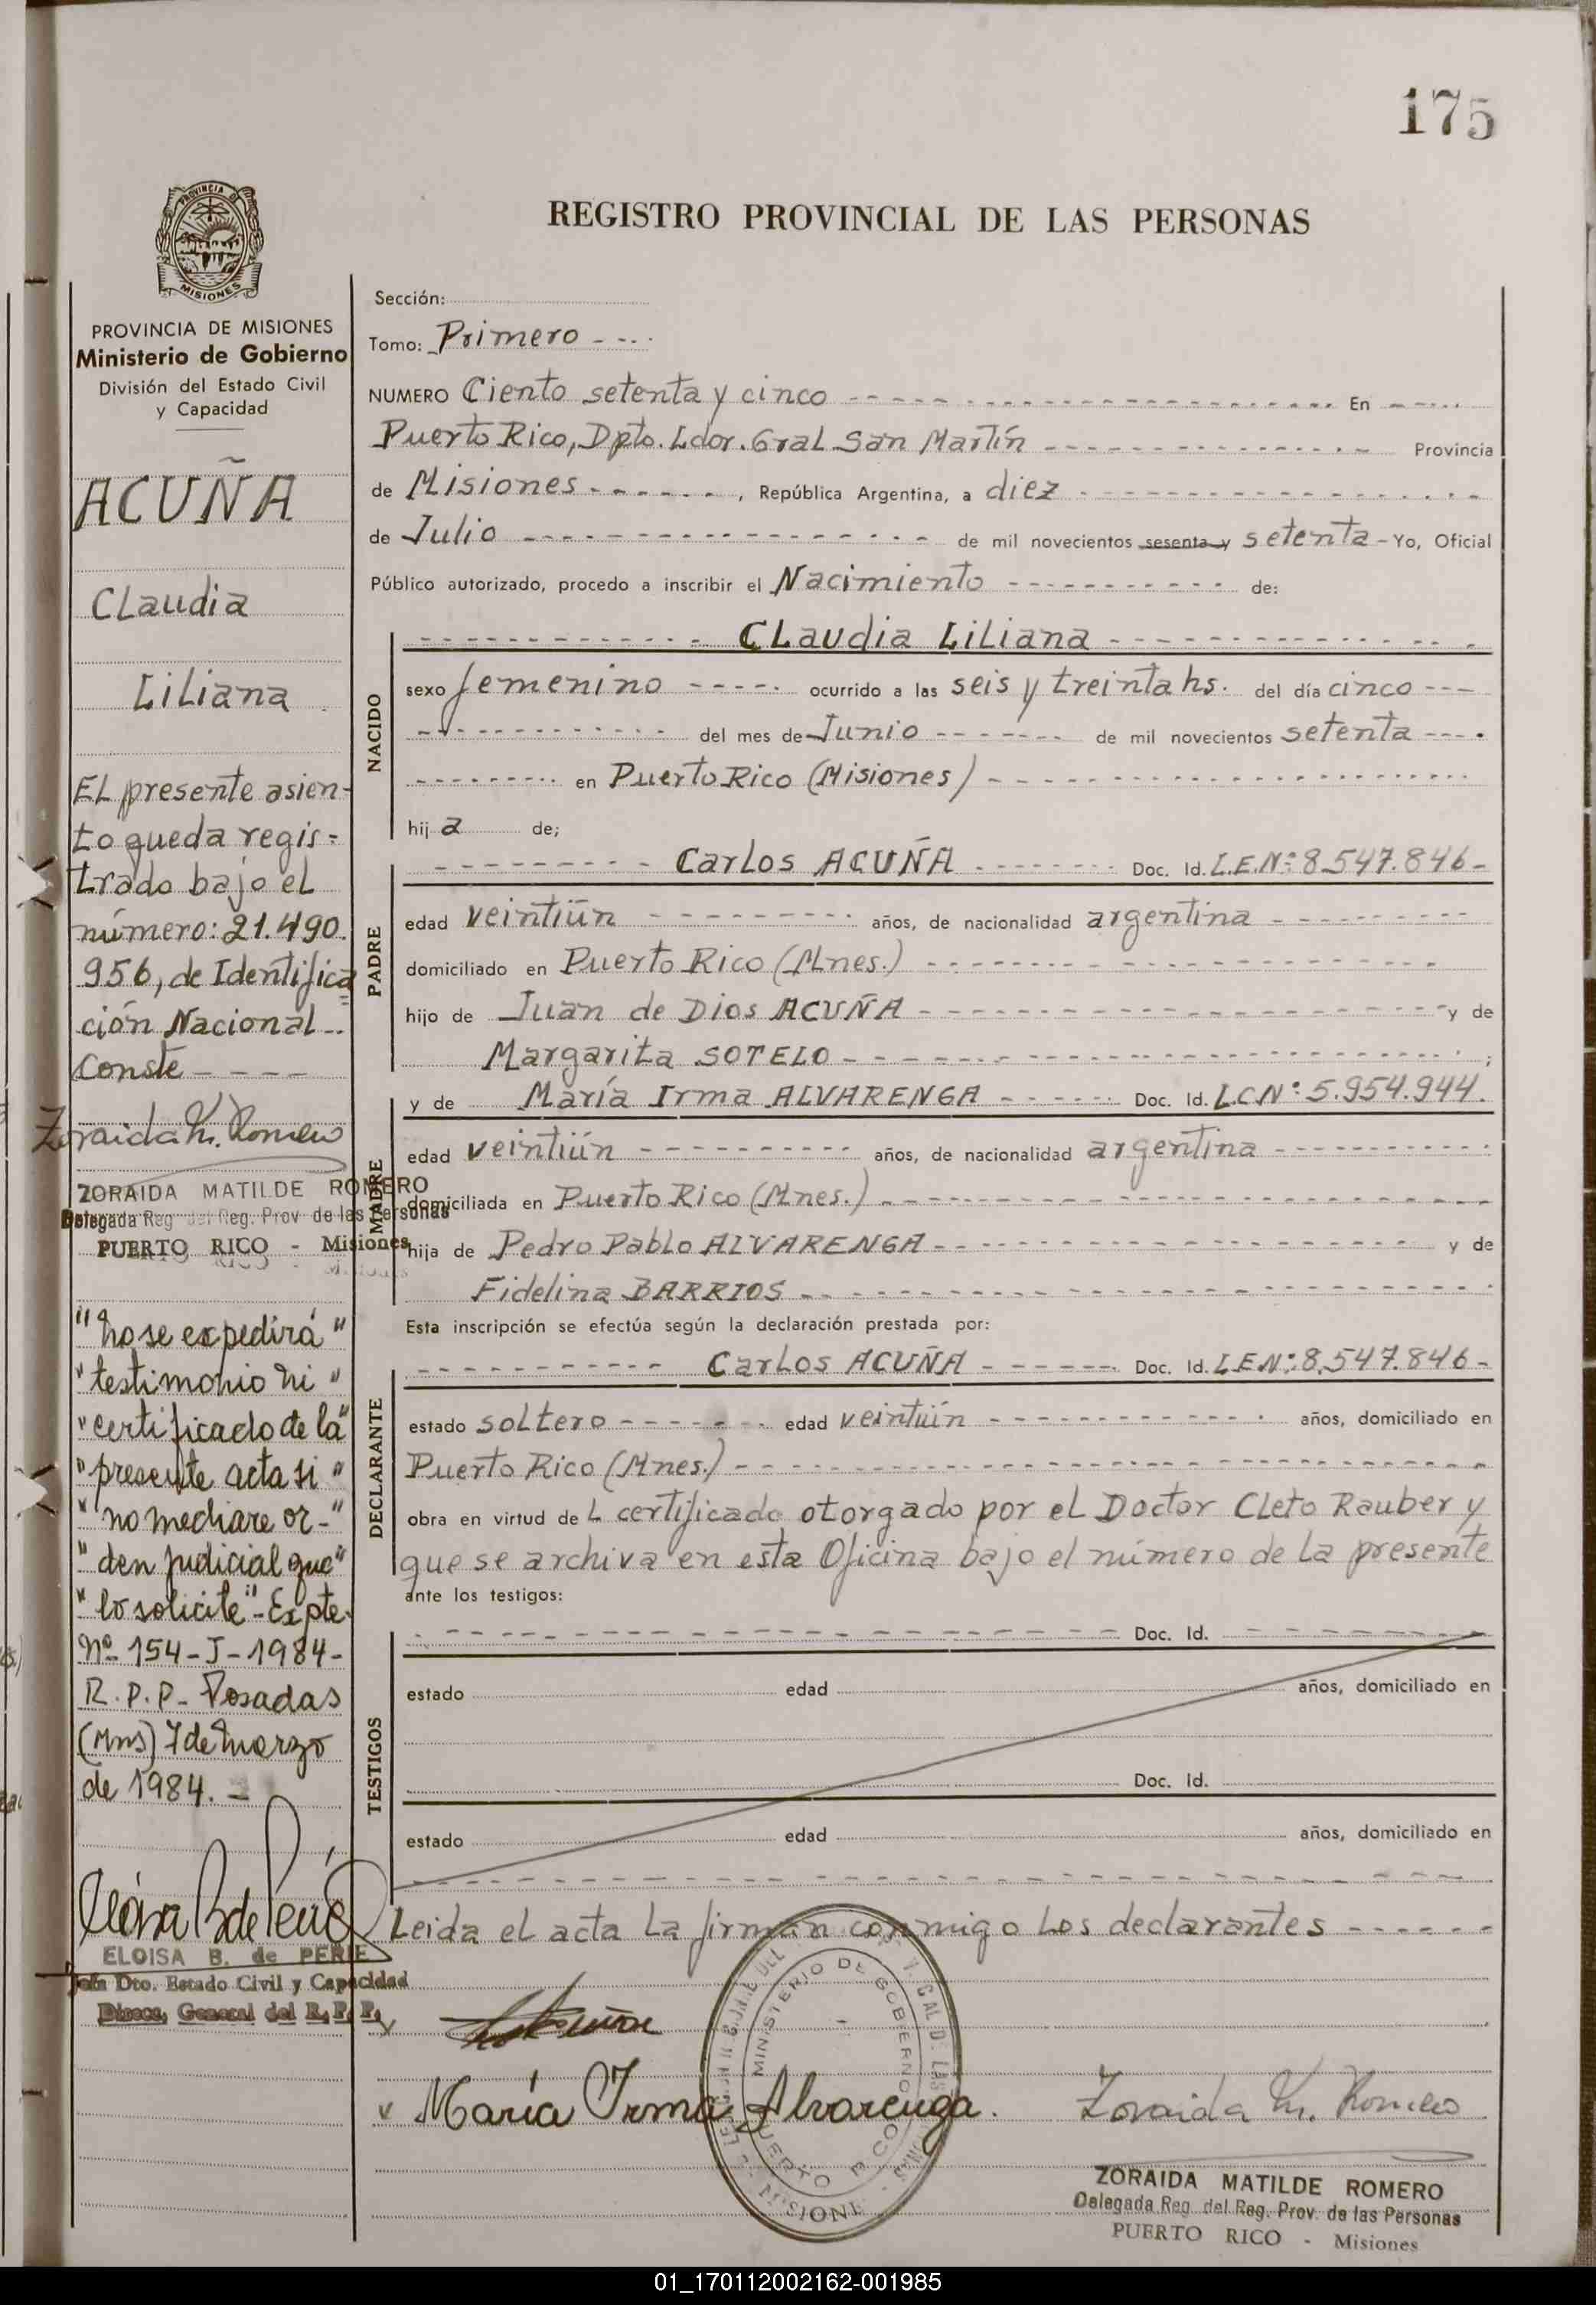 175
REGISTRO PROVINCIAL DE LAS PERSONAS
PROVINCIA DE MISIONES
Ministerio de Gobierno
División del Estado Civil
y Capacidad
ACUÑA
Claudia
Liliana
El presente asien-
to queda regis=
trado bajo el
número: 21.490.
956, de Identifica
ción Nacional -.
Conste - - - -
Zoraida M. Romero
ZORAIDA MATILDE ROMERO
Delegada Reg. del Reg. Prov. de las Personas
PUERTO RICO - Misiones
"No se expedirá"
"testimonio ni"
"certificado de la"
"presente acta si"
"no mediare or-"
"den judicial que"
"lo solicite" - Expte.
Nº 154-J-1984-
R.P.P. - Posadas
(Mns) 7 de Marzo
de 1984. -
ELOISA B. de PERIE
Jefa Dto. Estado Civil y Capacidad
Direcc. General del R. P. P.
Sección:
Tomo: Primero - - - -
NUMERO Ciento setenta y cinco - - - - En - - - -
Puerto Rico, Dpto. Ldor. Gral San Martín - - - - Provincia
de Misiones - - - - , República Argentina, a diez - - - -
de Julio - - - - de mil novecientos sesenta y setenta - Yo, Oficial
Público autorizado, procedo a inscribir el Nacimiento - - - - de:
NACIDO
- - - - Claudia Liliana - - - -
sexo femenino - - - - ocurrido a las seis y treinta hs. del día cinco - - -
- - - - del mes de Junio - - - - de mil novecientos setenta - - - -
- - - - en Puerto Rico (Misiones) - - - -
hij a de;
PADRE
- - - - Carlos ACUÑA - - - - Doc. Id. L.E.Nº: 8.547.846 -
edad veintiún - - - - años, de nacionalidad argentina - - - -
domiciliado en Puerto Rico (Mnes.) - - - -
hijo de Juan de Dios ACUÑA - - - - y de
Margarita SOTELO - - - - ;
MADRE
y de María Irma ALVARENGA - - - - Doc. Id. L.C.Nº: 5.954.944.
edad veintiún - - - - años, de nacionalidad argentina - - - -
domiciliada en Puerto Rico (Mnes.) - - - -
hija de Pedro Pablo ALVARENGA - - - - y de
Fidelina BARRIOS - - - -
Esta inscripción se efectúa según la declaración prestada por:
DECLARANTE
- - - - Carlos ACUÑA - - - - Doc. Id. L.E.Nº: 8.547.846 -
estado soltero - - - - edad veintiún - - - - años, domiciliado en
Puerto Rico (Mnes.) - - - -
obra en virtud de L certificado otorgado por el Doctor Cleto Rauber y
que se archiva en esta Oficina bajo el número de la presente
ante los testigos:
TESTIGOS
- - - - Doc. Id. - - - -
estado edad años, domiciliado en
Doc. Id.
estado edad años, domiciliado en
- - - -
Leida el acta la firman conmigo los declarantes - - - -
María Irma Alvarenga.
Zoraida M. Romero
MINISTERIO DE GOBIERNO
ZORAIDA MATILDE ROMERO
Delegada Reg. del Reg. Prov. de las Personas
PUERTO RICO - Misiones
01_170112002162-001985